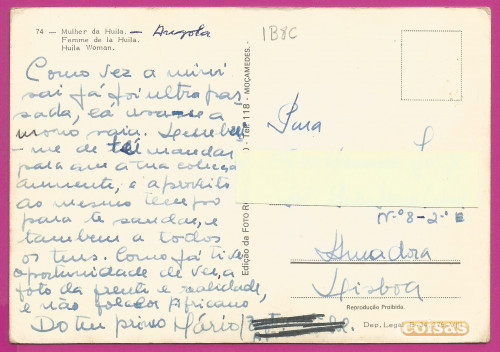 74 — Mulher da Huila. — Angola
Femme de la Huila.
Huila Woman.
1B8C
Como vez a mini
sai já foi ultrapas
sada, cá usa-se a
mono saia. Lembrei
-me de te mandar
para que a tua coleção
aumente, e aproveito
ao mesmo tempo
para te saudar, e
tambem a todos
os teus. Como já tives
oportunidade de ver, a
foto da frente é realidade,
e não folclor Africano
Do teu primo Mário
Edição da Foto
Tel. 118 - MOÇAMEDES -
Para
Nº 8-2º E
Amadora
Lisboa
Reprodução Proibida.
Dep. Legal
coisas